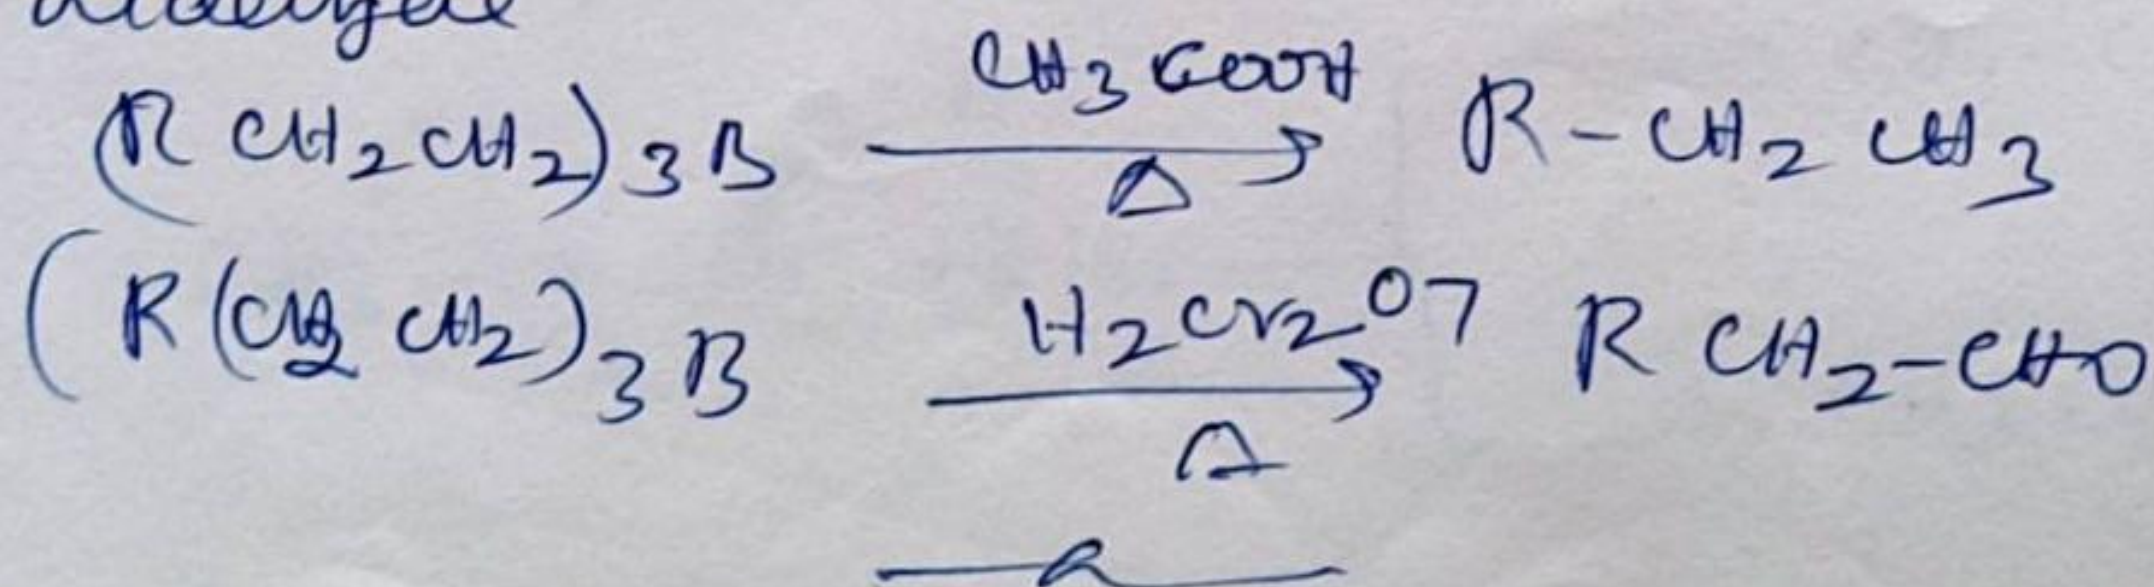 (R CH2 CH2)3 B CH3 COOH Δ R - CH2 CH3
(R (CH2 CH2)3 B H2Cr2O7 Δ R CH2-CHO